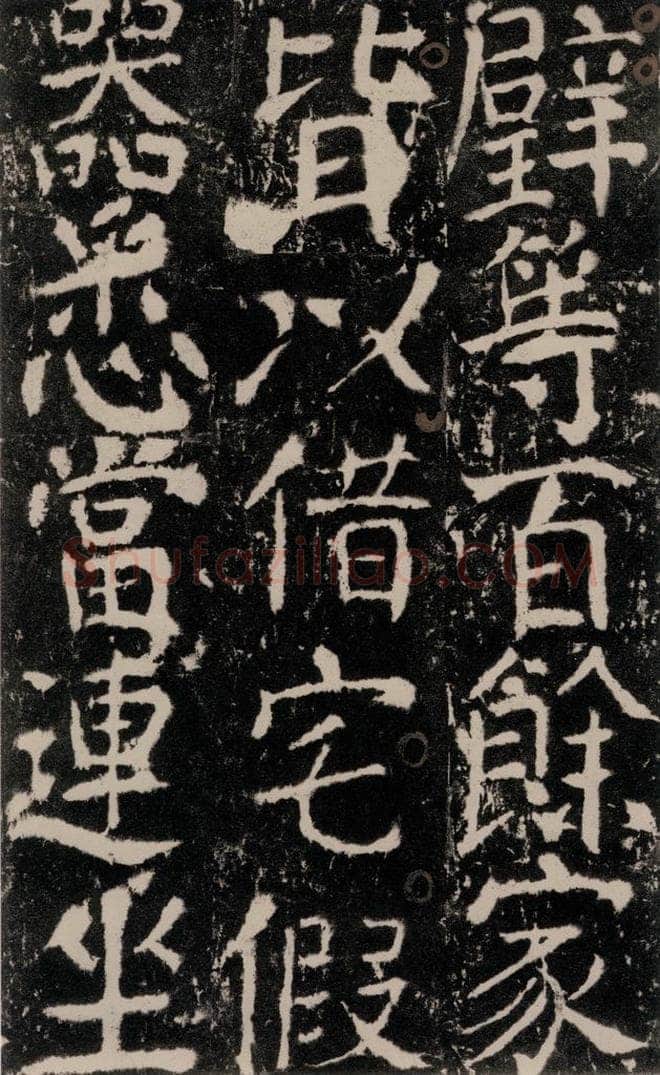 璧等百餘家
皆以借宅假
器悉當連坐
Shufaziliao.COM